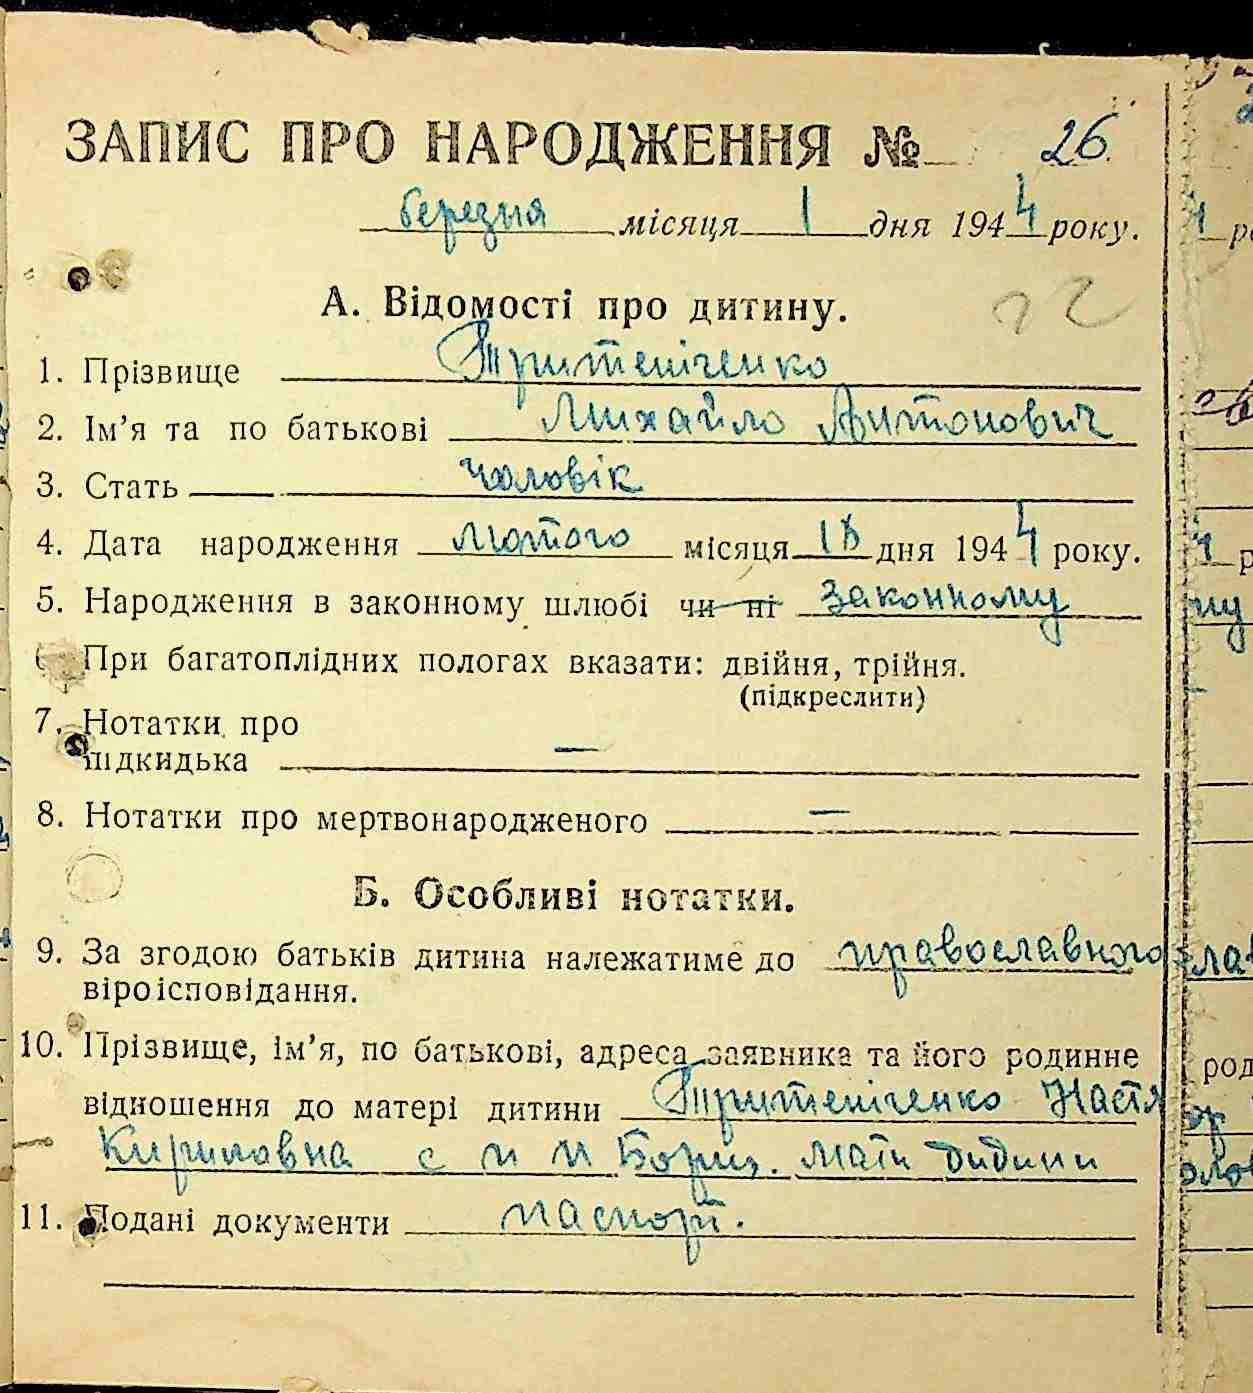 ЗАПИС ПРО НАРОДЖЕННЯ № 26.
березня місяця 1 дня 1944 року.
А. Відомості про дитину.
1. Прізвище Тритеніченко
2. Ім’я та по батькові Михайло Антонович
3. Стать чоловік
4. Дата народження лютого місяця 18 дня 1944 року.
5. Народження в законному шлюбі чи ні законному
При багатоплідних пологах вказати: двійня, трійня.
(підкреслити)
7. Нотатки про
підкидька —
8. Нотатки про мертвонародженого —
Б. Особливі нотатки.
9. За згодою батьків дитина належатиме до православного
віроісповідання.
10. Прізвище, ім’я, по батькові, адреса заявника та його родинне
відношення до матері дитини Тритеніченко Настя
Кириловна с н н Бориз. мати дидини
11. Подані документи паспорт.